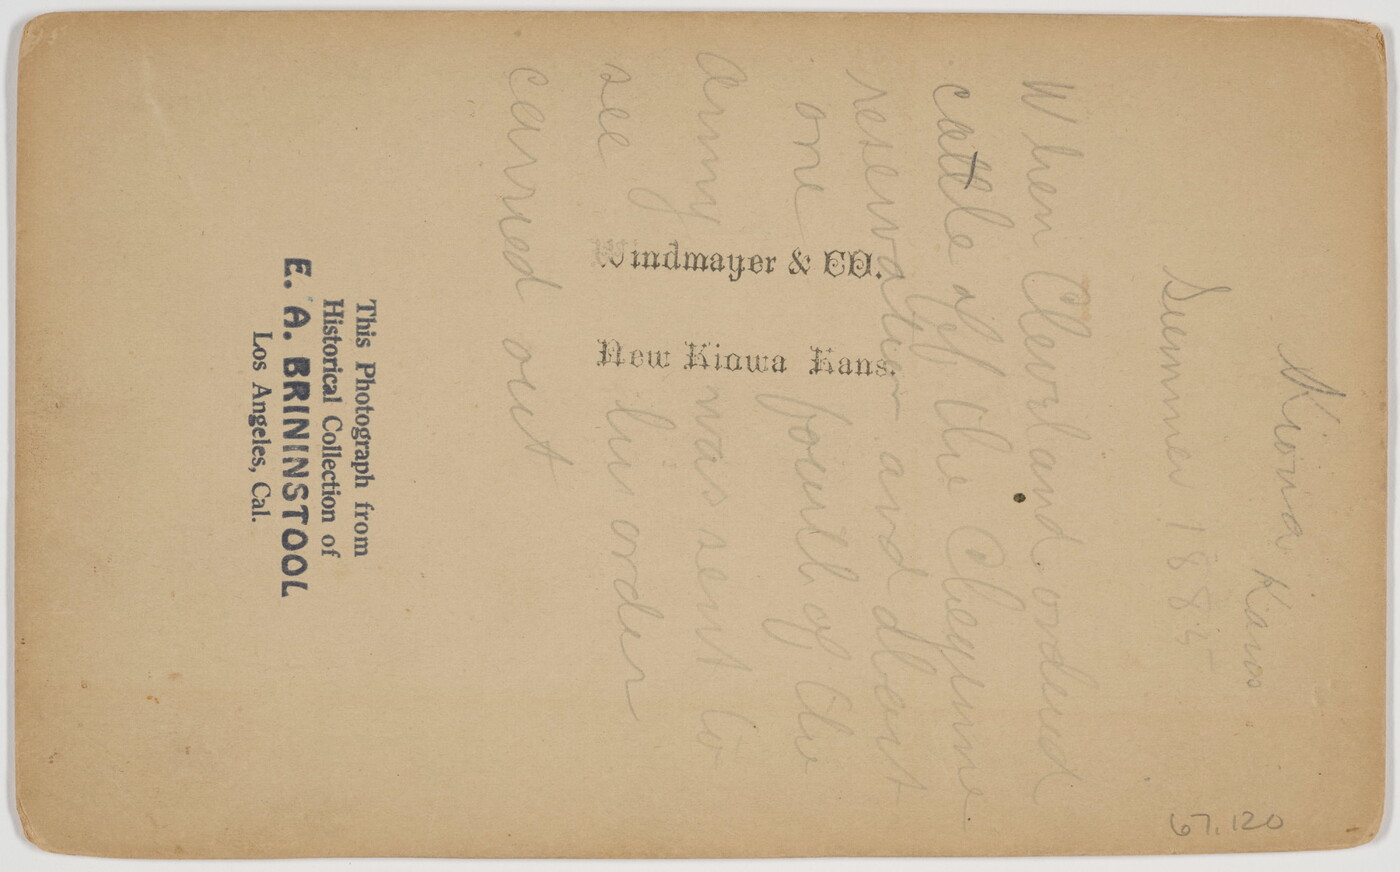 Kiowa Kans
Summer 1885
When Clevorland ordered
cattle off the Cheyenne
reservation and
one fourth of the
army was sent to
see his order
carried out
Windmayer & CO.
New Kiowa Kans.
This Photograph from
Historical Collection of
E. A. BRININSTOOL
Los Angeles, Cal.
67.120